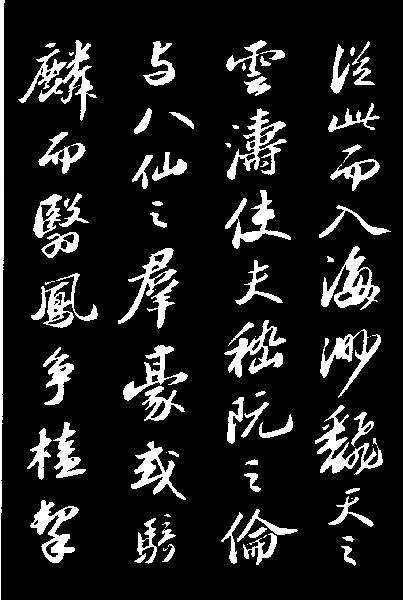 從此而入海渺飜天之
雲濤使夫嵇阮之倫
与八仙之羣豪或騎
麟而翳鳳争榼挈